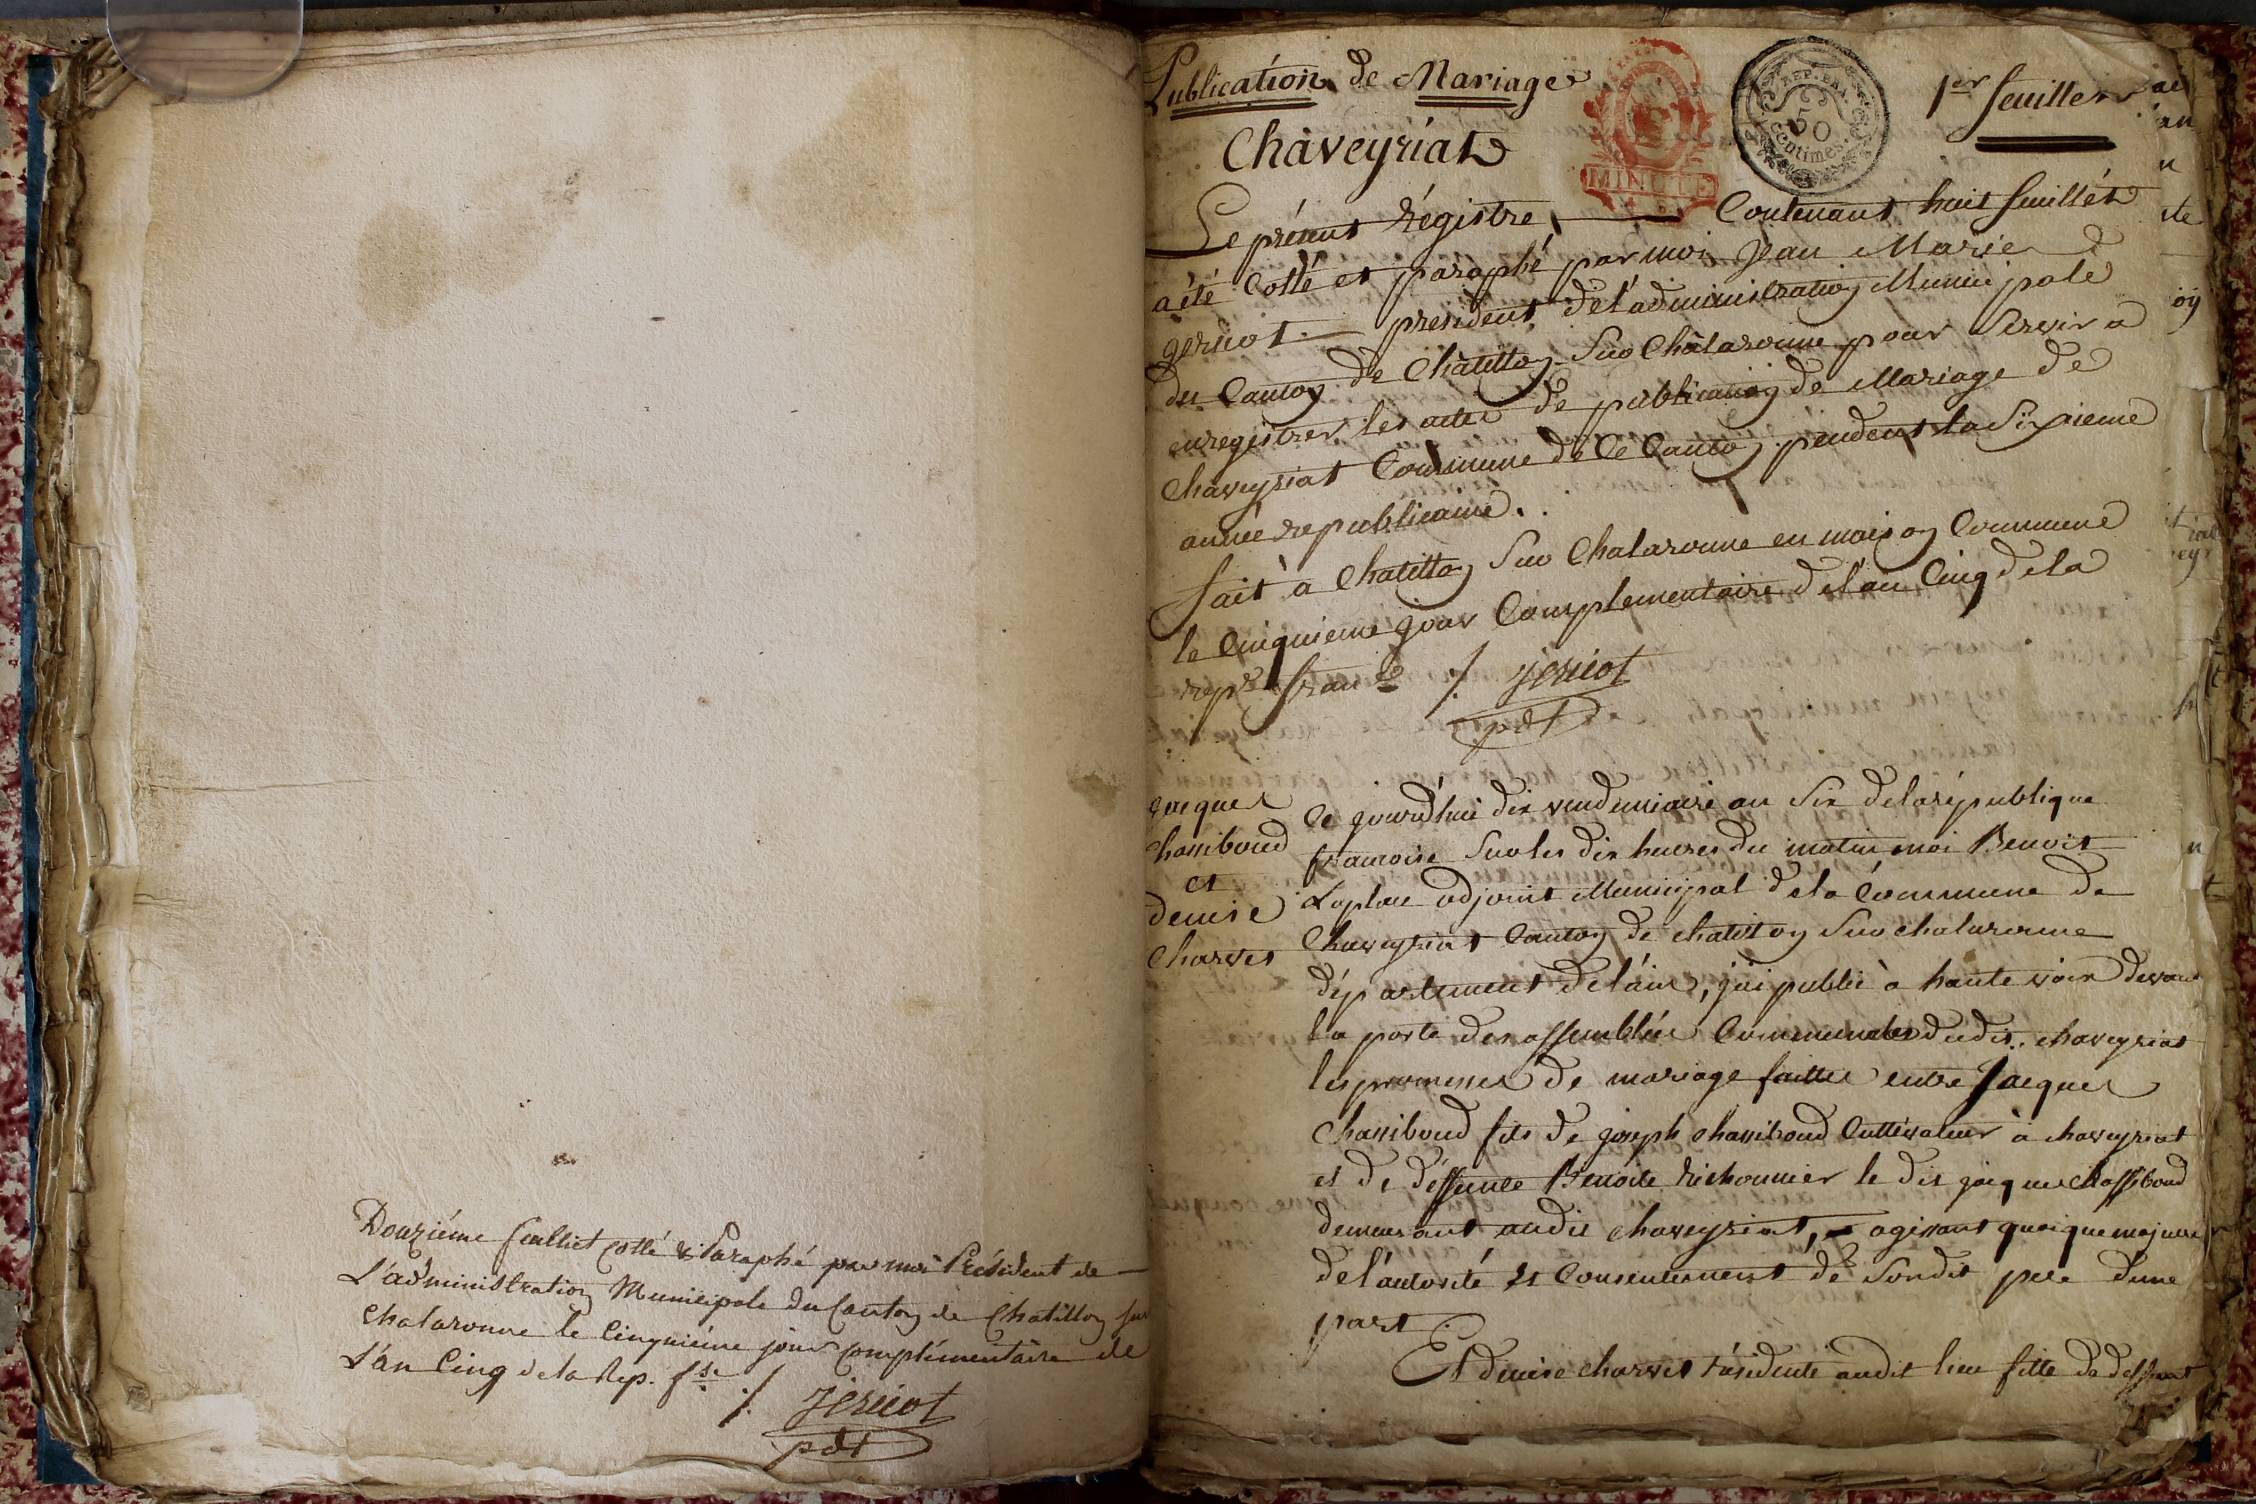 Douziéme feulliet cotté & Paraphé par moi Président de
L'administration Municipale du Canton de Chatillon sur
Chalaronne le Cinquiéme jour complémentaire de
L'an Cinq de la Rep. fse ./. Jericot
pdt
Publication de Mariage
1er feuillet
Chàveyriat
REP. FRA.
50
centimes.
MINUTE
Le présent Régistre, Contenant huit feuillets
a été Cotté et paraphé par moi Jean Marie
gericot président de l'administration Municipale
du Canton de Châtillon Sur Chàlaronne pour Servir a
enregistrer les actes de publication de Mariage de
Chàveyriat Commune de Ce Canton pendent la Sixieme
année republicaine.
fait à Chatillon Sur Chalaronne en maison Commune
le Cinquieme jour Complementaire de l'an Cinq de la
repe. franse ./. Jericot
pdt
jacques
Chassiboud
et
denise
Charvet
Ce jourd'hui dix vendemiaire an Six de la république
francoise Sur les dix heures du matin moi Benoit
Laplace adjoint Municipal de la Commune de
Chaveyriat Canton de chatillon Sur chalaronne
département de l'ain, j'ai publié à haute voix devant
la porte des assemblées Communales dudit chaveyriat
les promesses de mariage faittes entre Jacques
Chassiboud fils de joseph chassiboud Cultivateur à chaveyriat
et de déffunte Benoite Richonnier le dit jacques chassiboud
demeurant audit chaveyriat, agissant quoique majeure
de l'autorité et Consentement de Sondit pere d'une
part.
Et denise charvet résidente audit lieu fille de deffunt